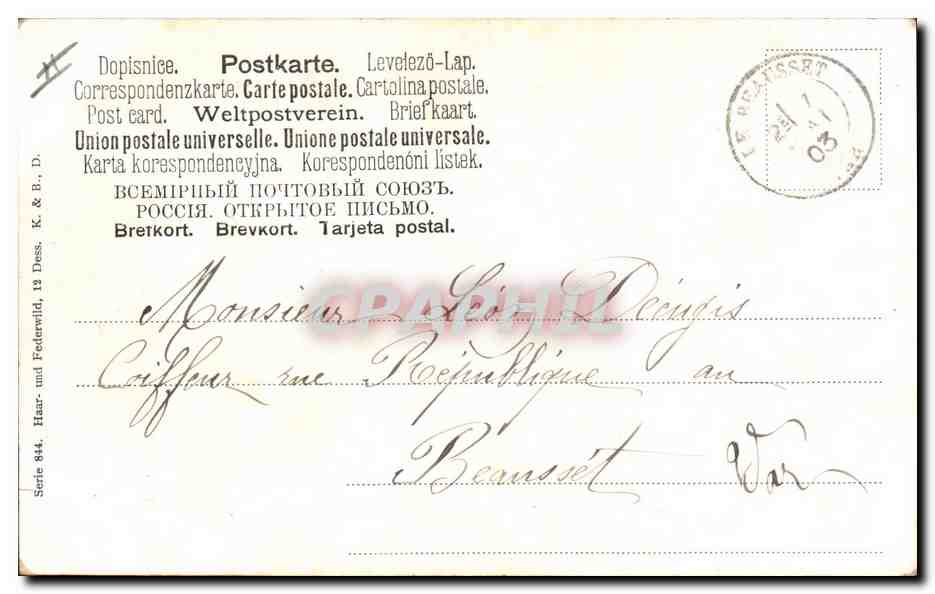 Dopisnice. Postkarte. Levelező-Lap.
Correspondenzkarte. Carte postale. Cartolina postale.
Post card. Weltpostverein. Briefkaart.
Union postale universelle. Unione postale universale.
Karta korespondencyjna. Korespondenční lístek.
ВСЕМІРНЫЙ ПОЧТОВЫЙ СОЮЗЪ.
РОССІЯ. ОТКРЫТОЕ ПИСЬМО.
Brefkort. Brevkort. Tarjeta postal.
LE BEAUSSET
03
Monsieur Léon
Coiffeur rue République au
Beausset Var
Serie 844. Haar- und Federwild, 12 Dess. K. & B., D.
CPAPHIL